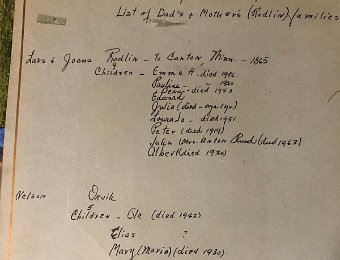 List of Dad's + Mother's (Rodlin) families
Lars & Joana Rodlin - to Canton, Minn. - 1865
Children - Emma H. died 1946
Pauline -
Perry - died 1953
Edward
Julia (died - age 1 yr)
died 1951
Peter (died 1919)
Julia Mrs. Anton Ruud (died 1963)
Albert (died 1930)
Nelson
Children - Ole (died 1942)
Elias ?
Mary (Maria) (died 1930)